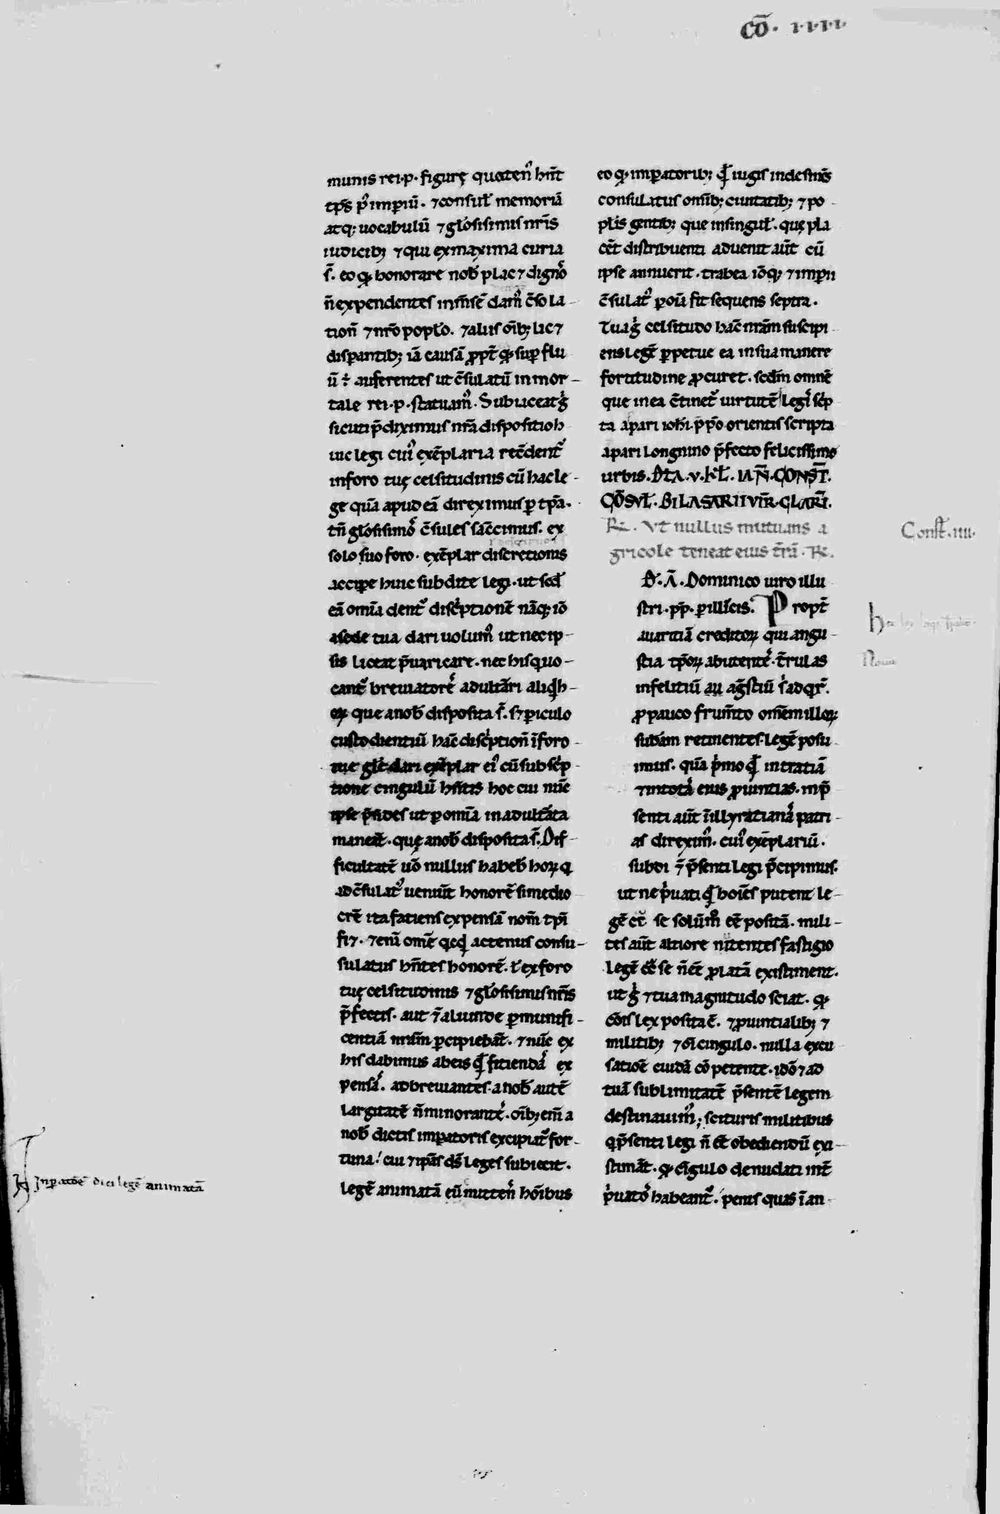 cō. ıııı.
munis rei.p. figurę quaten' hn̄t
tp̄s p̄ imp̄iū. ⁊ consul' memoriā
atq; uocabulū ⁊ glo̅sissimis nr̄is
iudicib; ⁊ qui ex maxima curia
s̄. eo q honorare nob̄ plac⁊ digno
n̄ expendentes
tion̄ ⁊ nr̄o pop̄lo. ⁊ aliis om̄ib; lic⁊
dispantib; iā causā ꝓpt̄ q sup flu
ū ÷ auferentes ut c̄sulatū in mor-
tale rei.p. statuam'. Subliceat g̊
sicuti p̄diximus nr̄a dispositioh
uic legi cui' exēplaria recēdent'
in foro tuę celsitudinis cū hac le-
ge quā apud eā direximus ꝑ tp̄a.
tn̄ glo̅sissimos c̄sules sāccimus. ex
solo suo foro. exēplar discretionis
accipe huic subdite legi. ut sed'
eā om̄ia dent' discēptionē nāq; iō
a sede tua dari uolum' ut nec ip-
sis liceat p̄uaricare. nec his quo-
cant' breuiatorē adult̄ari aliq̄ h-
oꝝ que a nob̄ disposita s̄. s⁊ ꝑiculo
custodientiū hāc discēptionē ī foro
tue glīe dari exēplar ei' cū subscēp-
tione cingulū hn̄tis hoc cui nūc
ipse p̄sides ut ꝑ om̄ia inadultāta
maneāt. quę a nob̄ disposita s̄. Dif
ficultatē uō nullus habeb̄ hoꝝ q
ad c̄sulat' ueniūt honorē si medio
crē ita fatiens expensā nom̄ tp̄i
fi⁊. ⁊ enī omē qcq̄ actenus consu-
sulatus hn̄tes honorē. l' ex foro
tuę celsitudinis ⁊ glo̅sissimis nr̄is
p̄fectis. aut ī aliunde ꝑ munifi-
centiā nr̄am ꝑcipiebāt. ⁊ nūc ex
his dabimus ab eis q̄ fitiendā ex
pensā. adbreuiantes. a nob̄ autē
largitatē n̄ minorantē. om̄ib; em̄ a
nob̄ dictis imp̄atoris excipiat' for-
tuna. cui ⁊ ip̄as d̄s leges subiecit.
legē animatā eū mitten̄ hōibus
eo q. imp̄atorib; q̄ iugis indesinēs
consulatus om̄ib; ciuitatib; ⁊ po-
plis gentib; que in singul'. que pla
cēt distribuenti aduenit aūt cū
ipse annuerit. trabea iōq; ⁊ imp̄ii
c̄sulat' ꝑ oīa fit sequens septra.
Tua g̊ celsitudo hāc nrā̄m suscipi
ens legē ꝑpetue ea in sua manere
fortitudine ꝓcuret. scdm̄ omnē
que in ea c̄tinet' uirtutē legi' sc̄p
ta apari ioh̄i. p̄p̄o orientis scripta
apari Longnino p̄fecto felicissime
urbis. DTA. V. KL'. IAN̄. CONST̄.
CŌSVL'. BILASARII VIR̄. CLARI.
R̄. Vt nullus mutuans a
gricole teneat eius t̄rā. R̄.
Const̄. iiii.
D̄. Ā. Dominico uiro illu
stri. p̄p. ꝑ illicis. Propt̄
auaritiā creditoꝝ qui angu-
stia tp̄oꝝ abutentē. t̄rulas
infelitiū
ꝓ pauco frum̄to omēm illoꝝ
subām retinentes. legē posu-
imus. quā p̄mo q̄ in tratiā
⁊ in totā eius ꝓuintias. inp̄
senti aūt ī illyratianā patri-
as direxim'. cui' exēplariū.
subdi ī p̄senti legi p̄cipimus.
ut ne p̄uati q̄ hoīes putent le-
gē cē. se solūm̄ eē positā. mili-
tes aūt altiore nitentes fastigio
legē ēē se n̄ ēē ꝓlatā existiment.
ut g̊ ⁊ tua magnitudo sciat. q
cōis lex posita ē. ⁊ ꝓuintialib; ⁊
militib; ⁊ oī cingulo. nulla excu
satione cuidā cō petente. idō ⁊ ad
tuā sublimitatē p̄sentē legem
destinauim'; scituris militibus
q p̄senti legi n̄ ēē obediendū exi-
stimāt. q cīgulo denudati int̄
p̄uatos habeant'. penis quas ī an-
Inp̄atorē dici legē animatā